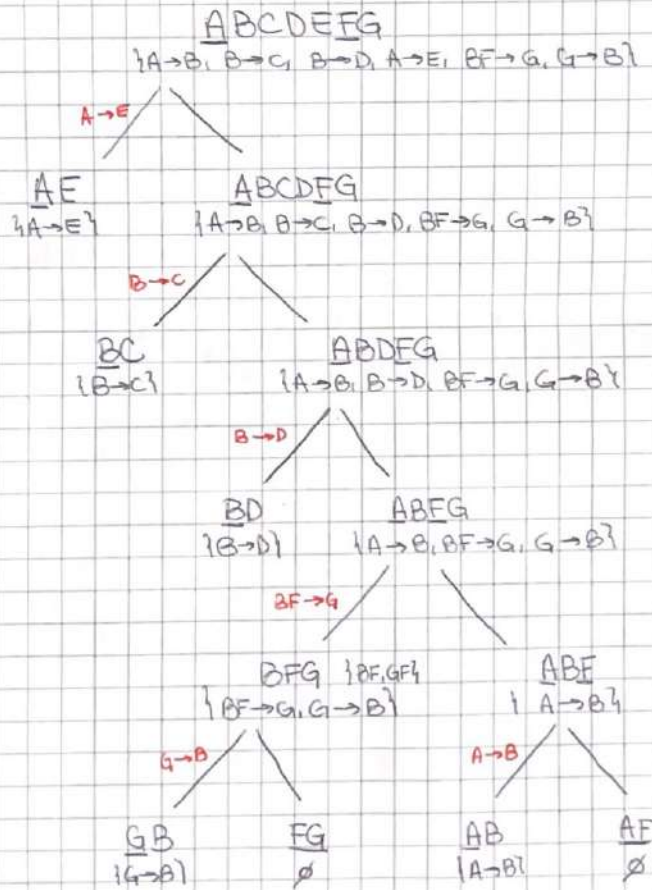 ABCDEFG
{A→B, B→C, B→D, A→E, BF→G, G→B}
A→E
AE ABCDFG
{A→E} {A→B, B→C, B→D, BF→G, G→B}
B→C
BC ABDFG
{B→C} {A→B, B→D, BF→G, G→B}
B→D
BD ABFG
{B→D} {A→B, BF→G, G→B}
BF→G
BFG {BF, GF} ABF
{BF→G, G→B} {A→B}
G→B A→B
GB FG AB AF
{G→B} ∅ {A→B} ∅